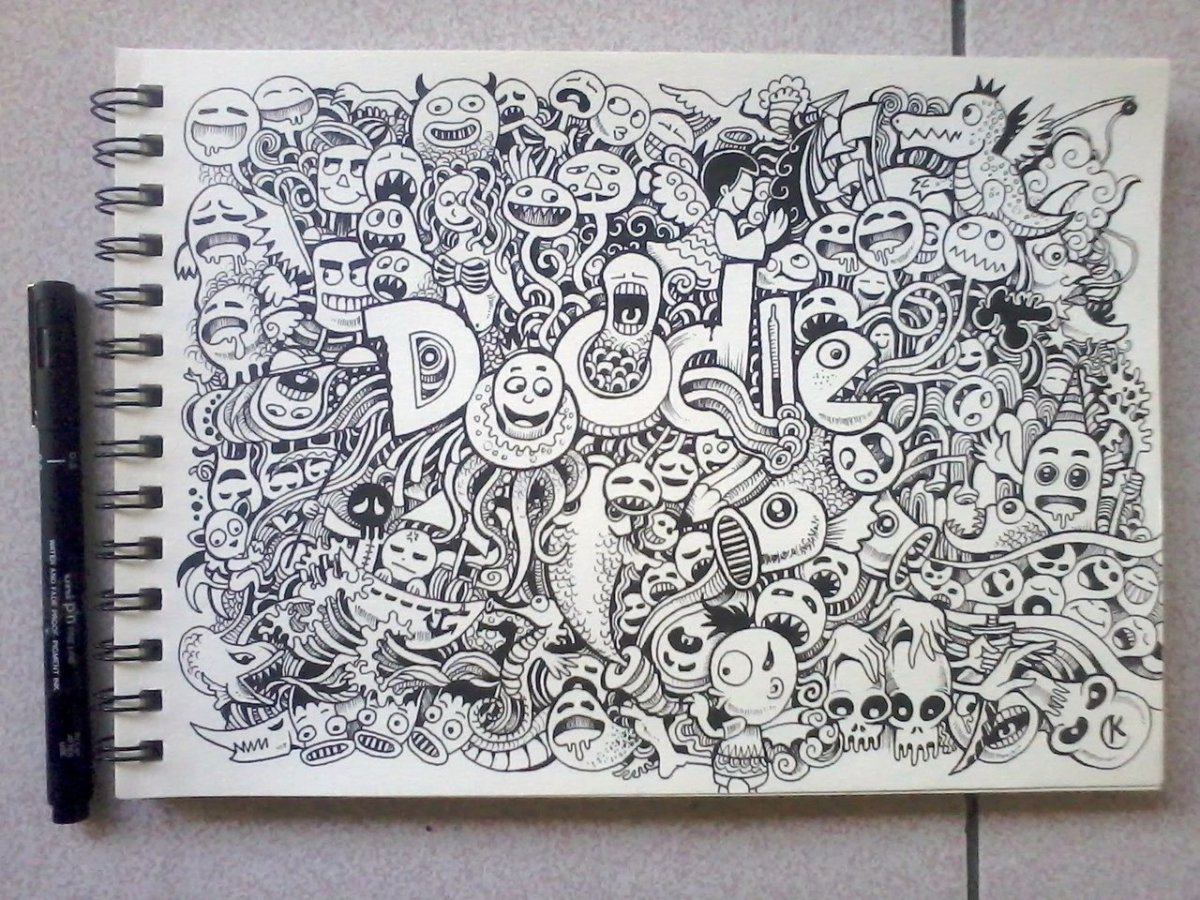 Doodle
uni pin FINE LINE
WATER AND FADE PROOF PIGMENT INK
K